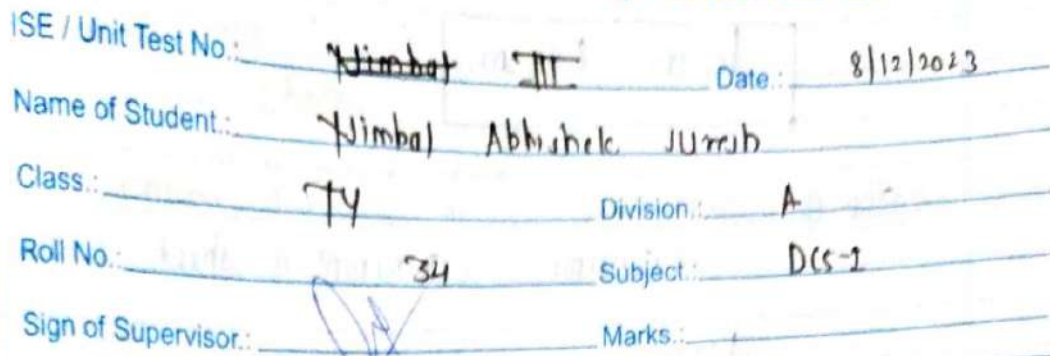 ISE / Unit Test No.: Nimbal III Date.: 8/12/2023
Name of Student.: Nimbal Abhishek Suresh
Class.: TY Division.: A
Roll No.: 34 Subject.: DCS-1
Sign of Supervisor.: Marks.: